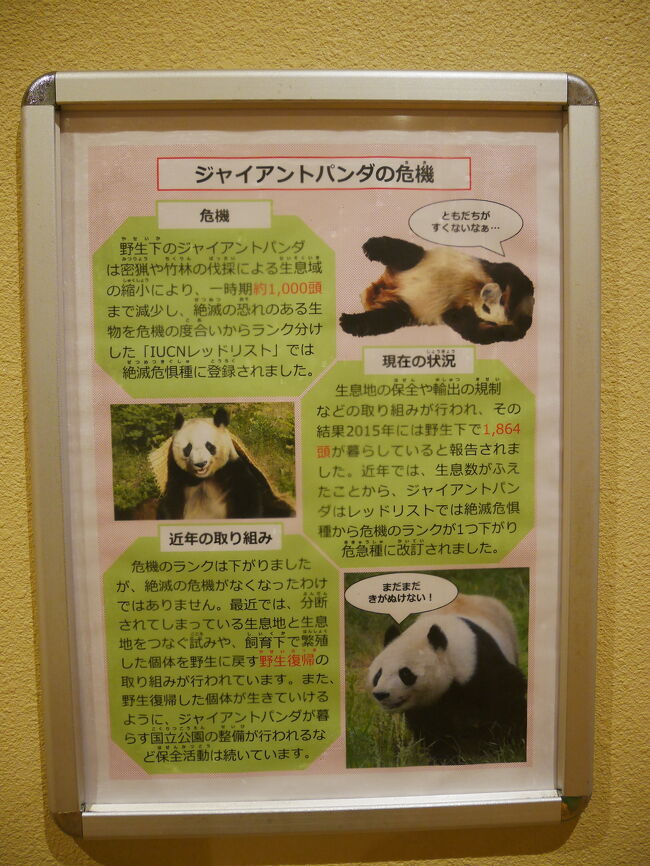 ジャイアントパンダの危機
危機
野生下のジャイアントパンダ
は密猟や竹林の伐採による生息域
の縮小により、一時期約1,000頭
まで減少し、絶滅の恐れのある生
物を危機の度合いからランク分け
した「IUCNレッドリスト」では
絶滅危惧種に登録されました。
ともだちが
すくないなぁ…
現在の状況
生息地の保全や輸出の規制
などの取り組みが行われ、その
結果2015年には野生下で1,864
頭が暮らしていると報告されま
した。近年では、生息数がふえ
たことから、ジャイアントパン
ダはレッドリストでは絶滅危惧
種から危機のランクが1つ下がり
危急種に改訂されました。
近年の取り組み
危機のランクは下がりました
が、絶滅の危機がなくなったわけ
ではありません。最近では、分断
されてしまっている生息地と生息
地をつなぐ試みや、飼育下で繁殖
した個体を野生に戻す野生復帰の
取り組みが行われています。また、
野生復帰した個体が生きていける
ように、ジャイアントパンダが暮
らす国立公園の整備が行われるな
ど保全活動は続いています。
まだまだ
きがぬけない！